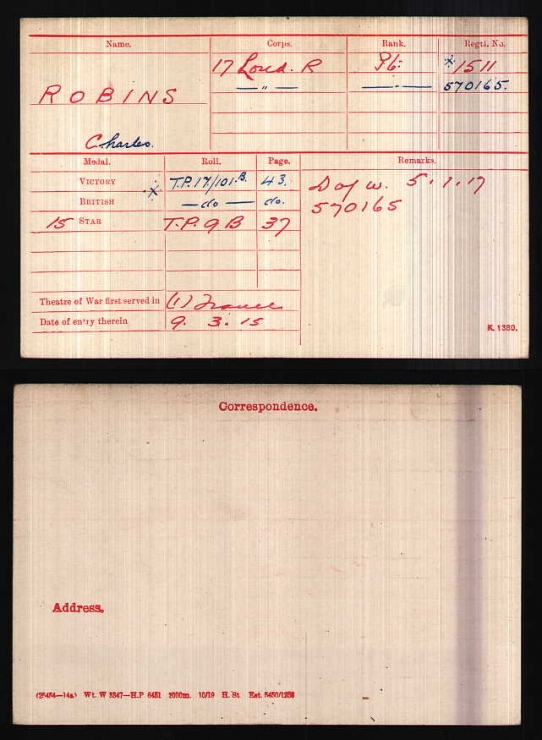 Name. Corps. Rank. Regtl. No.
17 Lond. R Pte. *1511
ROBINS — " — — " — 570165.
Charles.
Medal. Roll. Page. Remarks.
VICTORY * T.P.17/101.B. 43. D of w. 5.1.17
BRITISH — do — do. 570165
15 STAR T.P.9B 37
Theatre of War first served in (1) France
Date of entry therein 9. 3. 15
K. 1380.
Correspondence.
Address.
Wt. W 5347—H.P 6481 10/19 H. St.